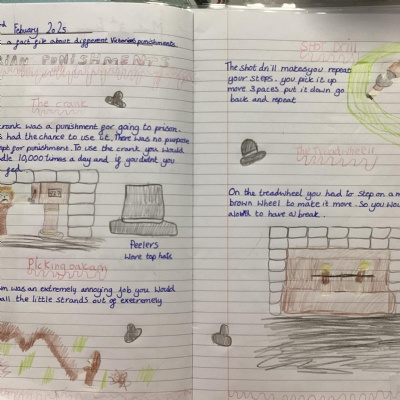 rd Febuary 2025
a fact file about different Victorian punishments
PUNISHMENTS
The crank
crank was a punishment for going to prison.
s had the chance to use it. There was no purpose
ept for punishment. To use the crank you would
dle 10,000 times a day and if you didn't you
fed
Peelers
Wore top hats
Picking oakam
um was an extremely annoying job you would
all the little strands out of extremely
Shot Drill
The shot drill makes you repeat
your steps. you pick it up
move 3 paces put it down go
back and repeat
The Treadwheel
On the treadwheel you had to step on a
brown wheel to make it move. So you wou
to have a break.